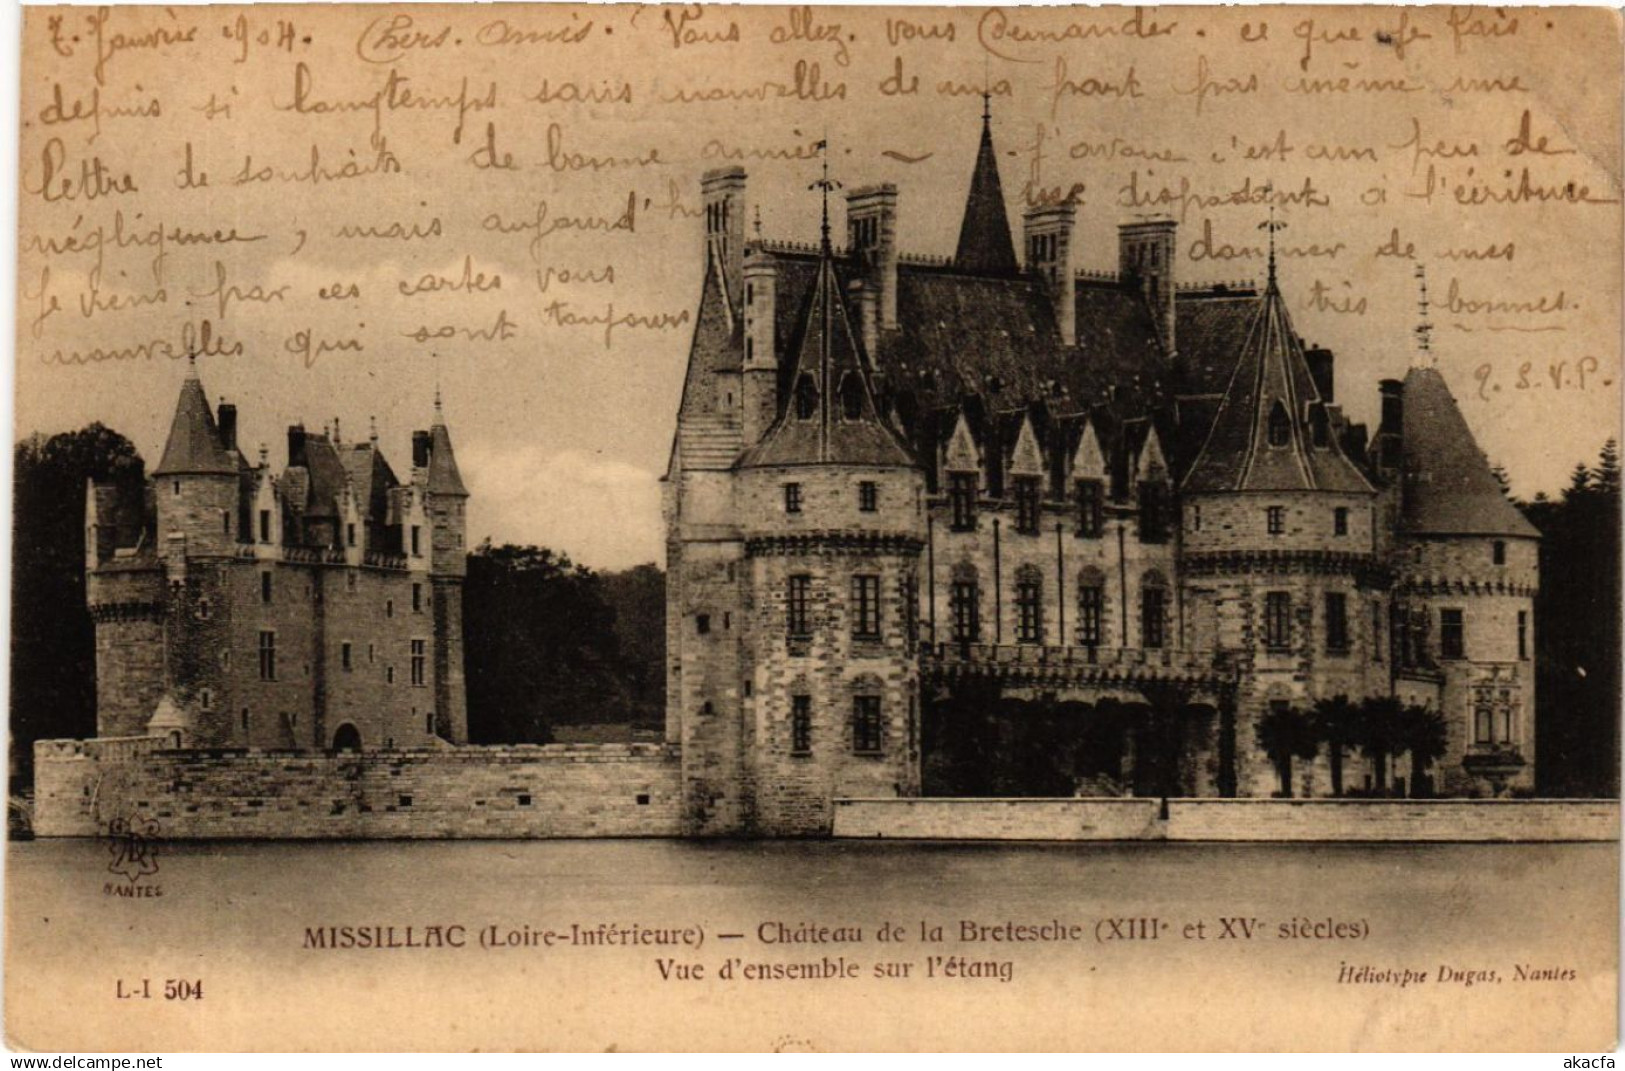 7. Janvier 1904. Chers. Amis. Vous allez. vous Demander. ce que je fais.
depuis si longtemps sans nouvelles de ma part pas même une
lettre de souhaits de bonne année. — J'avoue c'est un peu de
négligence, mais aujourd'hui me disposant à l'écriture
Je viens par ces cartes vous donner de mes
nouvelles qui sont toujours très bonnes.
T. S. V. P.
NANTES
MISSILLAC (Loire-Inférieure) — Château de la Bretesche (XIIIe et XVe siècles)
Vue d'ensemble sur l'étang
L-I 504
Héliotypie Dugas, Nantes
akacfa